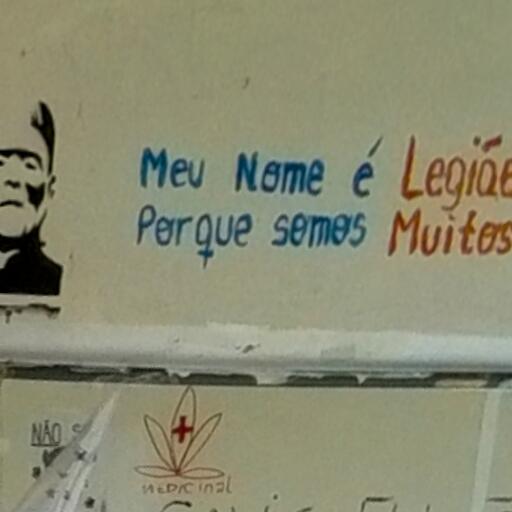 Meu Nome é Legião
Porque somos Muitos
NÃO
MEDICINAL